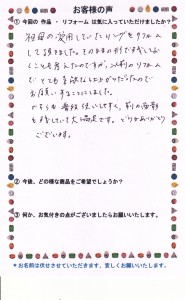 お客様の声
① 今回の 作品 ・ リフォーム は気に入っていただけましたか？
祖母の愛用していたリングをリフォーム
して頂きました。そのままの形で残してお
くことも考えたのですが、以前のリフォーム
でとても素敵な仕上がりだったので
お願いすることにしました。
こちらも普段使いしやすく、前の面影
も残していて大満足です。どうもありがとう
ございます。
② 今後、どの様な商品をご希望でしょうか？
③ 何か、お気付きの点がございましたらお願いいたします。
＊お名前は伏せさせていただきます。宜しくお願いいたします。